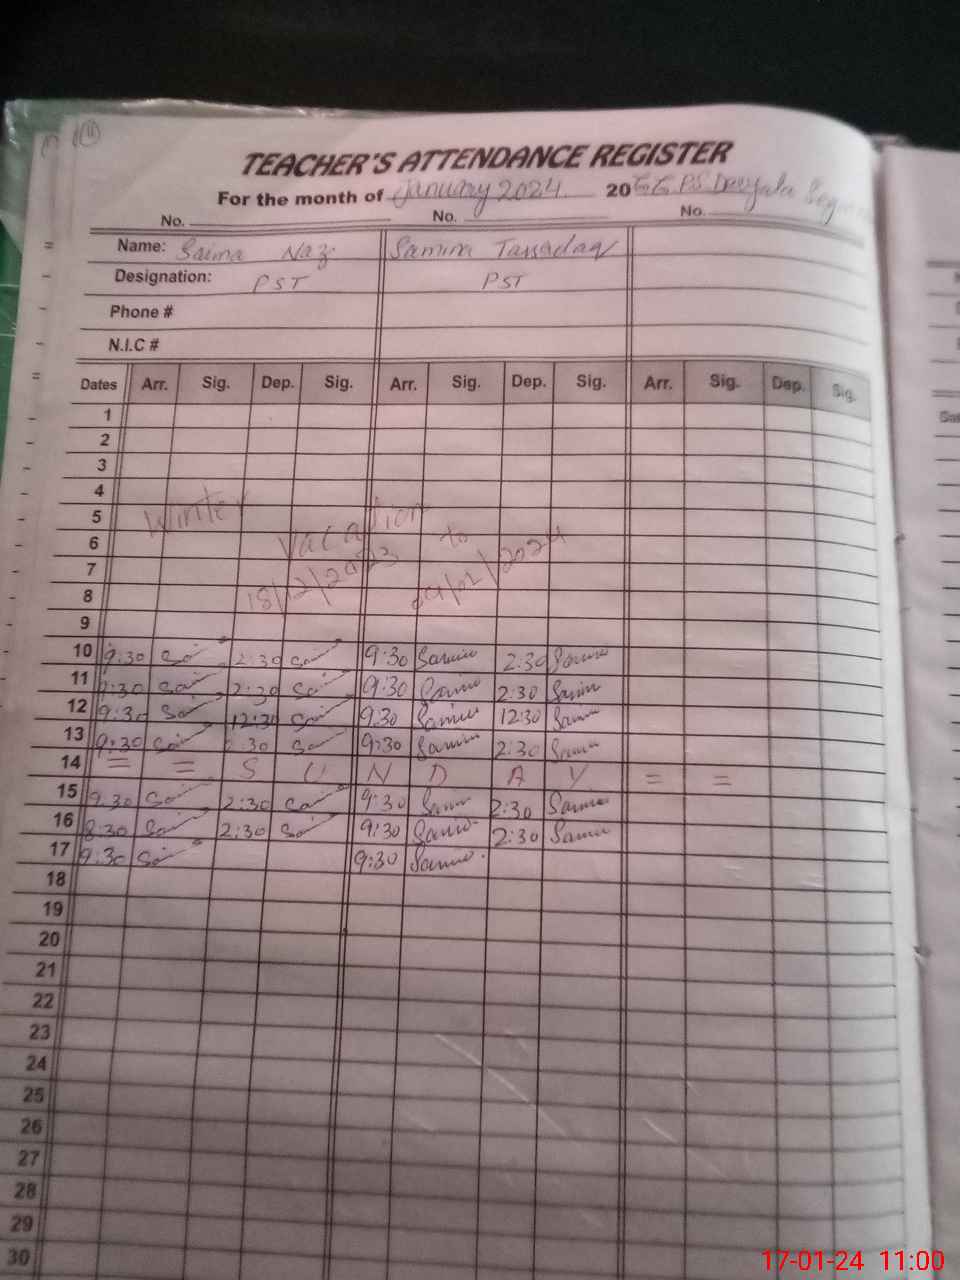 11
TEACHER'S ATTENDANCE REGISTER
For the month of January 2024 20
No. No. No.
Name: Saima Naz Samina Tassadaq
Designation: PST PST
Phone #
N.I.C #
Dates Arr. Sig. Dep. Sig. Arr. Sig. Dep. Sig. Arr. Sig. Dep. Sig.
1
2
3
4
5 Winter Vacation
6 to
7 18/12/2023 09/01/2024
8
9
10 9:30 Sai 2:30 Sai 9:30 Samina 2:30 Samina
11 9:30 Sai 2:30 Sai 9:30 Samina 2:30 Samina
12 9:30 Sai 12:30 Sai 9:30 Samina 12:30 Samina
13 9:30 Sai 2:30 Sai 9:30 Samina 2:30 Samina
14 = = S U N D A Y = =
15 9:30 Sai 2:30 Sai 9:30 Samina 2:30 Samina
16 8:30 Sai 2:30 Sai 9:30 Samina 2:30 Samina
17 9:30 Sai 9:30 Samina
18
19
20
21
22
23
24
25
26
27
28
29
30
17-01-24 11:00